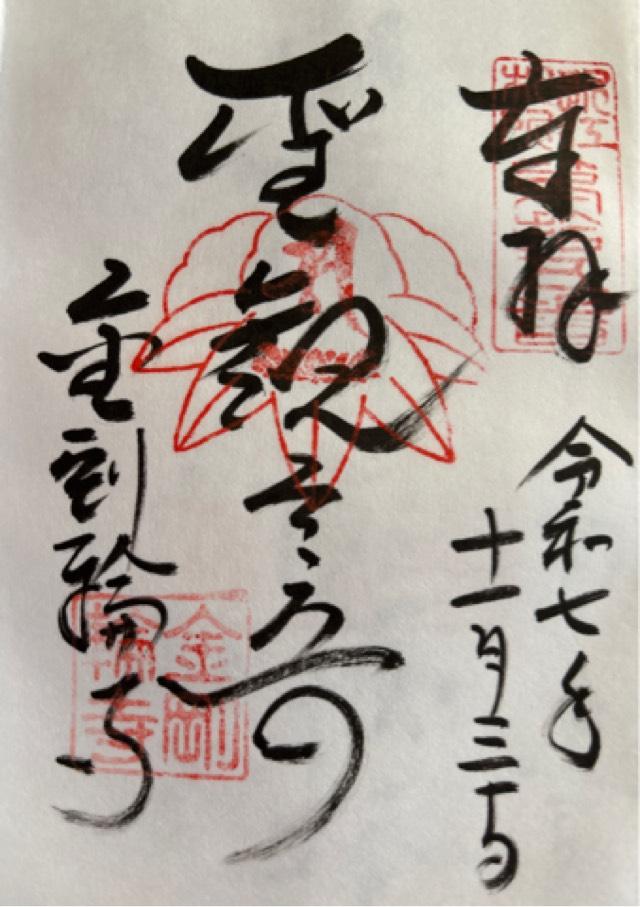 奉拝
令和七年
十一月三十日
聖観音
金剛輪寺
金剛
輪寺